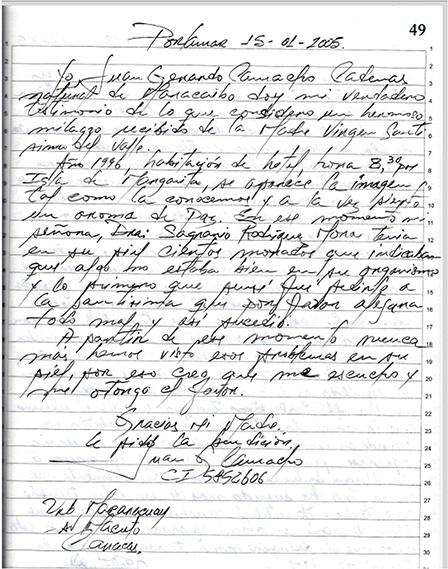 49
Porlamar 15-01-2005.
Yo, Juan Gerardo Camacho Cadenas
natural de Maracaibo doy mi verdadero
testimonio de lo que considero un hermoso
milagro recibido de la Madre Virgen Santí
sima del Valle.
Año 1996, habitación de hotel, hora 8,30 pm
Isla de Margarita, se aparece la imagen
tal como la conocemos y a la vez siento
un aroma de Paz. En ese momento mi
señora, Dra. Sagrario Rodríguez Mora tenía
en su piel ciertos morados que indicaban
que algo no estaba bien en su organismo
y lo primero que pensé fué pedirle a
la Santísima que por favor alejara
todo mal, y así sucedió.
A partir de ese momento nunca
más hemos visto esos problemas en su
piel, por eso creo que me escuchó y
me otorgó el favor.
Gracias mi Madre,
le pido la bendición
Juan G Camacho
CI 5852606
Urb Macaracuay
Av
Caracas.